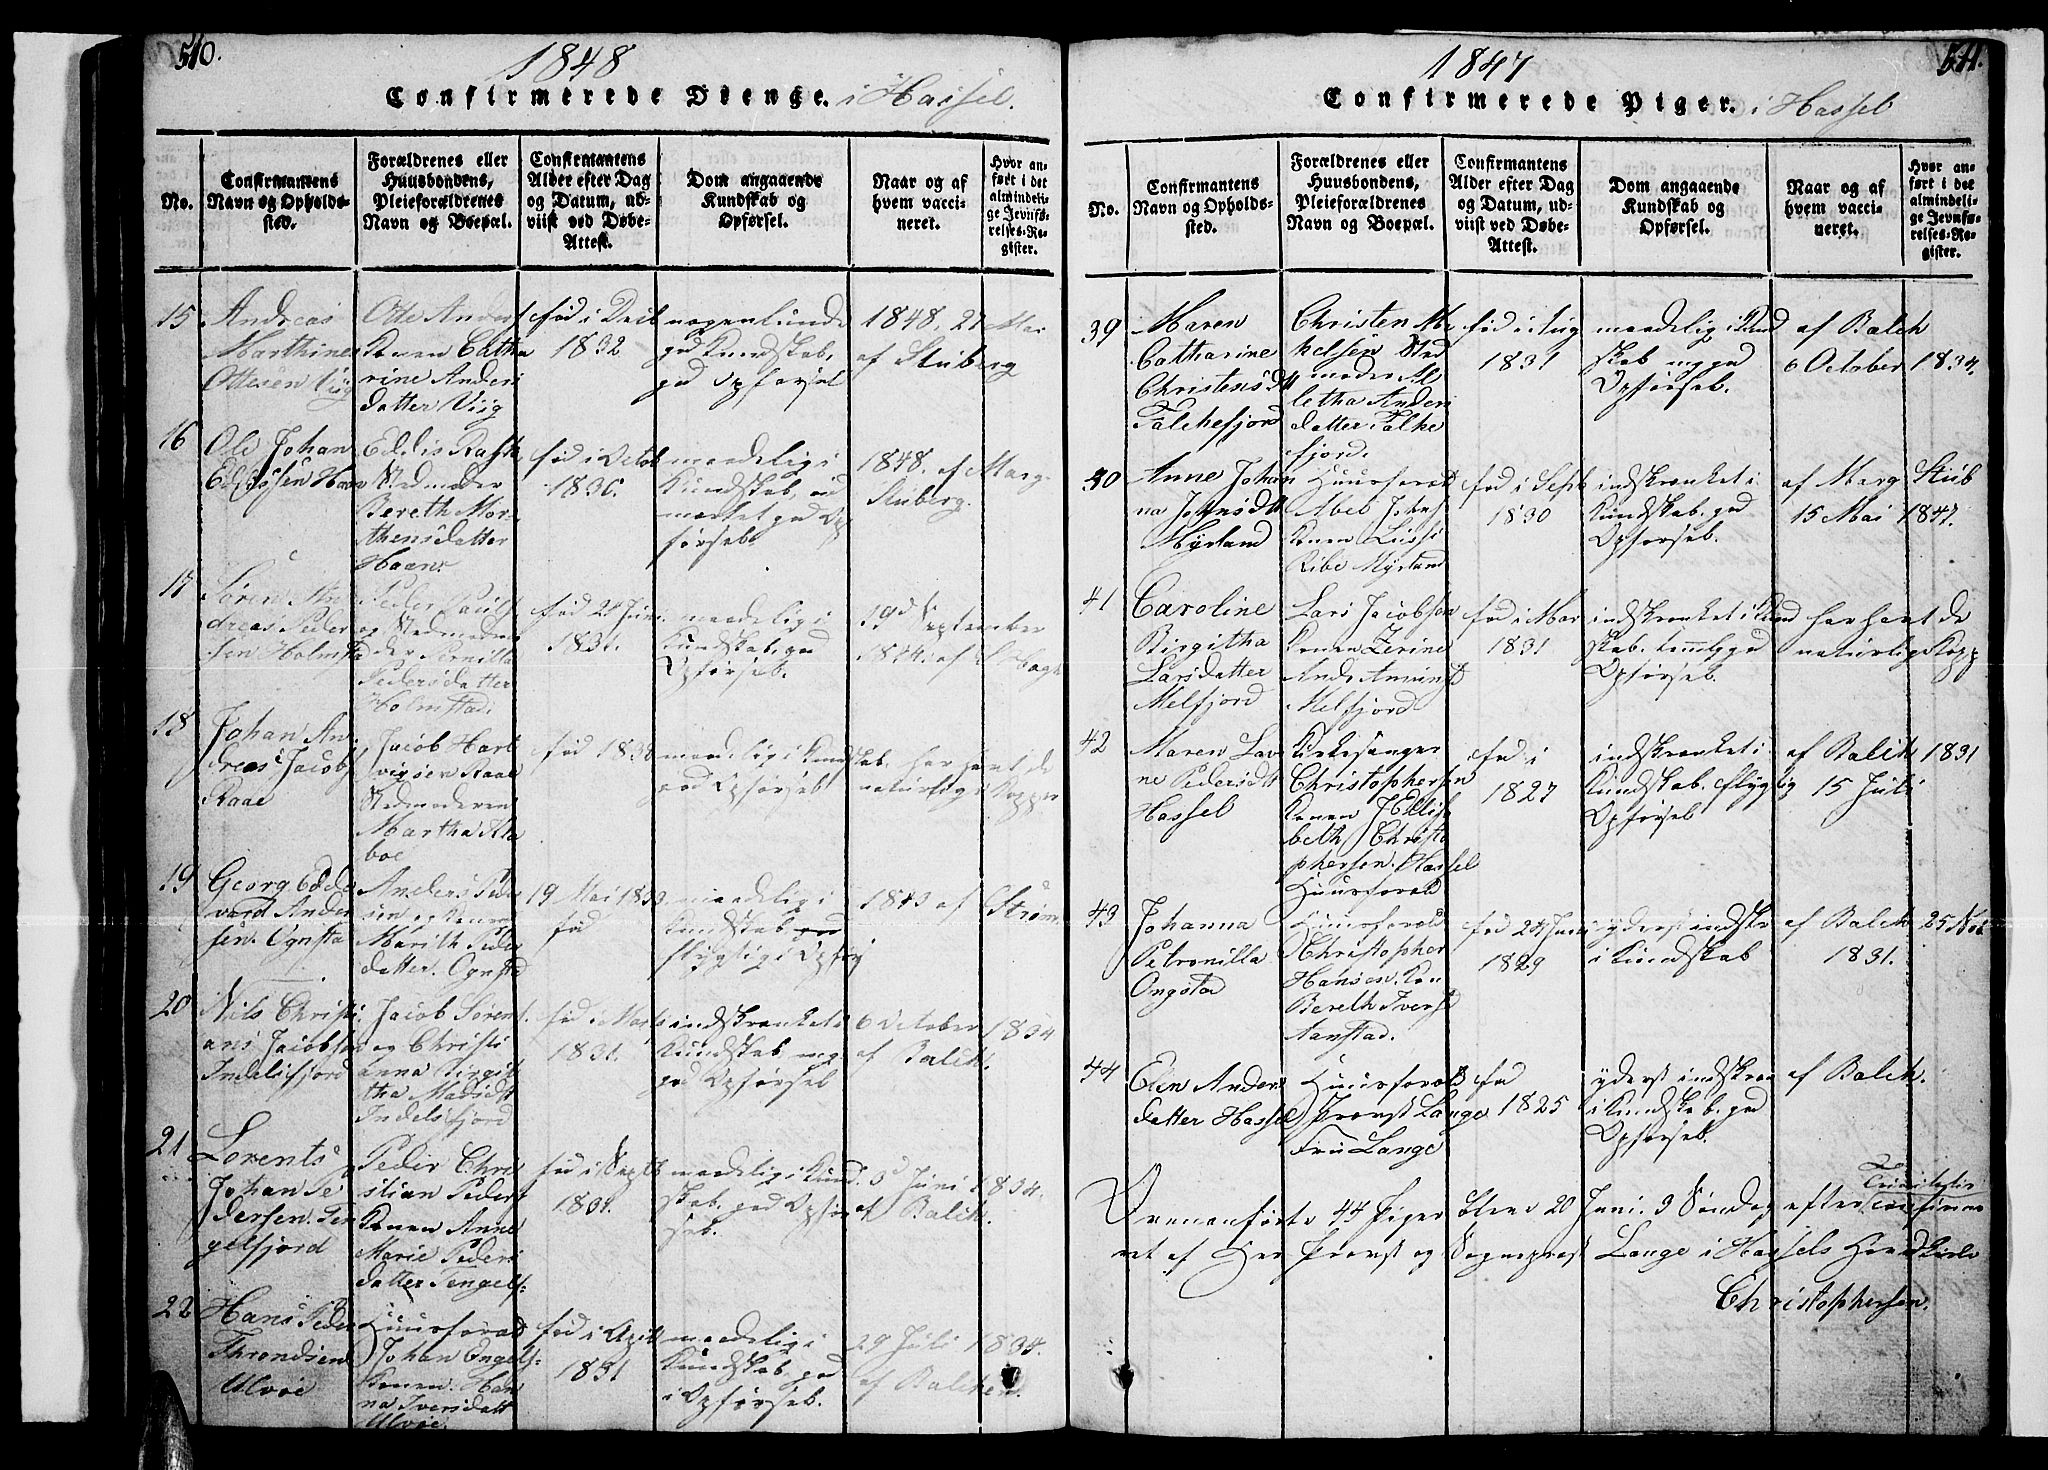 510.
1848
Confirmerede Drenge. i Hassel.
No.
Confirmantens
Navn og Opholds-
sted.
Forældrenes eller
Huusbondens,
Pleieforældrenes
Navn og Boepæl.
Confirmantens
Alder efter Dag
og Datum, ud-
viist ved Døbe-
Attest.
Dom angaaende
Kundskab og
Opførsel.
Naar og af
hvem vacci-
neret.
Hvor an-
ført i det
almindeli-
ge Jevnfø-
relses-Re-
gister.
15
Andreas
Marthines
Ottesen
Otte Anders
Konen Catha
rine Anders
datter
fød i
1832
nogenlunde
god Kundskab,
god Opførsel
1848, 27 Mai
af Stuberg
16
Ole Johan
Haan
Stedmoder
Bereth Mor-
thensdatter
Haan.
fød i Octob
1830.
maadelig i
Kundskab, ud
mærket god Op
førsel.
1848. af Marg.
Stuberg.
17
Søren An
dreas Peder
sen Holmsta
Peder
og Stedmode
Pernilla
Pedersdatter
Holmstad.
fød 24 Juni
1831.
maadelig i
Kundskab, god
Opførsel.
19d September
1834. af
18
Johan An
dreas Jacobs
Raae
Jacob Hart
vigsen Raae
Stedmoderen
Martha
boe
fød 1830
maadelig i Kundskab.
god Opførsel
har havt de
naturlige Kopper
19
Georg Edde
vard Ander
sen. Ognsta
Anders Peder
sen og Konen
Marith Peder
datter. Ognsta
19 Mai 1833
fød
maadelig i
Kundskab god
flygtig i Opførs
1843 af Strøm
20
Nils Christi
ans Jacobsen
Indelsfjord
Jacob Sørens.
og Christi
anna Birgit
tha Madsdt
Indelsfjord
1831.
indskrænket i
Kundskab, meg
god Opførsel
6 October 1834
af Balch.
21
Lorents
Johan Pe
dersen. Ten
gelfjord
Peder Chri
stian Peders
Konen Anne
Marie Peders
datter Tengelf:
fød i Septb
1831.
maadelig i Kund.
skab. god Opfør
sel.
3d Juni 1834.
af Balch.
22
Hans Peder
Throndsen
Ulvøe
Huusforæld
Johan Engels:
Konen. Han
na Iversdatt
Ulvøe.
fød i April
1831
maadelig i
Kundskab, god
i Opførsel.
29 Juli 1834.
af Balchen.
511.
1847
Confirmerede Piger. i Hassel
No.
Confirmantens
Navn og Opholds-
sted.
Forældrenes eller
Huusbondens,
Pleieforældrenes
Navn og Boepæl.
Confirmantens
Alder efter Dag
og Datum, ud-
viist ved Døbe-
Attest.
Dom angaaende
Kundskab og
Opførsel.
Naar og af
hvem vacci-
neret.
Hvor an-
ført i det
almindeli-
ge Jevnfø-
relses-Re-
gister.
39
Maren
Catharine
Christensdtt
Falchefjord
Christen Mi
helsen Sted
moder Al
letha Anders
datter Falke
fjord.
fød i Aug
1831
maadelig i Kund
skab meg god
Opførsel.
af Balch
6 October 1834.
40
Anne Johan
na Johnsdtt
Myrland
Huusforæld
Abel Johns
Konen Lussi
Ribe Myrland
fød i Sept
1830
indskrænket i
Kundskab. god
Opførsel.
af Marg Stub
15 Mai 1847.
41
Caroline
Birgitha
Larsdatter
Melfjord
Lars Jacobsen
Konen Zerine
Melfjord
fød i Mar
1831
indskrænket i Kund
skab. temmelig god
Opførsel.
har havt de
naturlige Kopp
42
Maren Lav
ne Pedersdtt
Hassel
Kirkesanger
Christophersen
Konen J Ellisa
beth Christo
phersen. Hassel
Huusforæld
fød i
1827
indskrænket i
Kundskab. flygtig
Opførsel
af Balch 1831
15 Juli
43
Johanna
Petronilla
Ongstad
Huusforæld
Christopher
Hansen. Kon
Bereth Ivers
Aanstad.
fød 24 Juni
1829
yderst indskr
i Kundskab
af Balch 25 Nob
1831.
44
Elen Anders
datter Hassel
Huusforæld
Provst Lange
Fru Lange
fød
1825
yderst indskræn
i Kundskab. god
Opførsel.
af Balch.
Ovenanførte 44 Piger bleve 20 Juni. 3 Søndag efter Trinitatis confirme
ret af Her Provst og Sognepræst Lange i Hassels Hovedkirke
Christophersen.